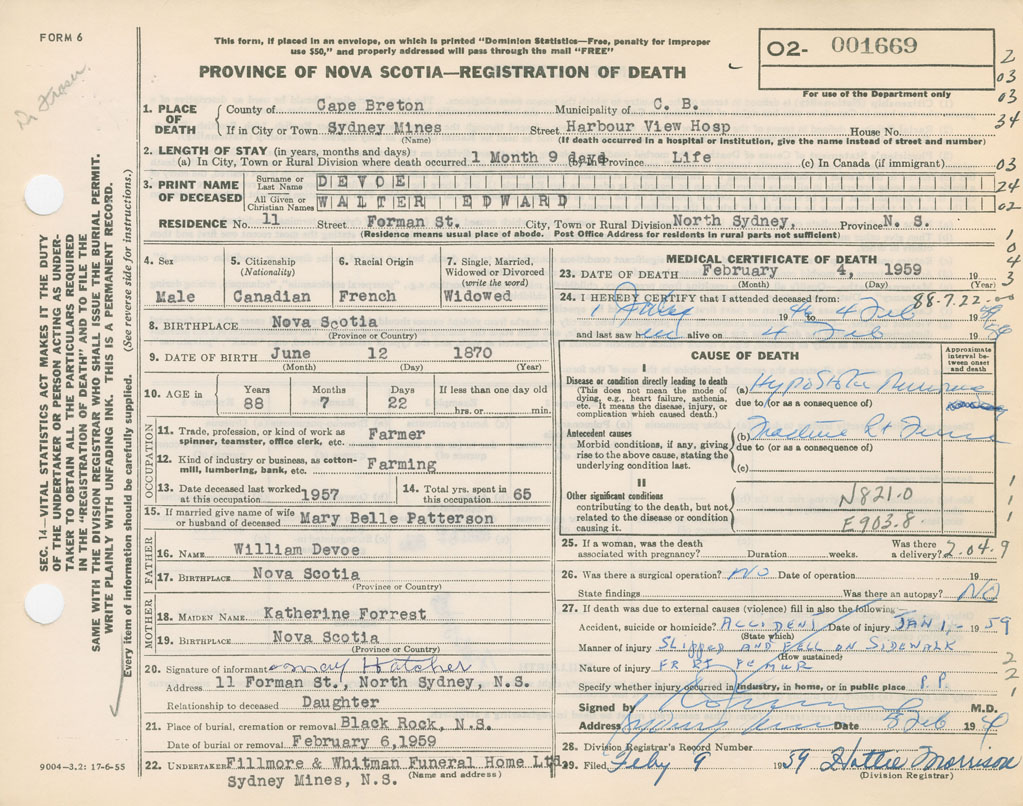 FORM 6
This form, if placed in an envelope, on which is printed "Dominion Statistics—Free, penalty for improper
use $50," and properly addressed will pass through the mail "FREE"
PROVINCE OF NOVA SCOTIA—REGISTRATION OF DEATH
O2- 001669
For use of the Department only
2
03
03
34
03
24
02
1
0
4
3
D. Fraser
SEC. 14—VITAL STATISTICS ACT MAKES IT THE DUTY
OF THE UNDERTAKER OR PERSON ACTING AS UNDER-
TAKER TO OBTAIN ALL THE PARTICULARS REQUIRED
IN THE "REGISTRATION OF DEATH" AND TO FILE THE
SAME WITH THE DIVISION REGISTRAR WHO SHALL ISSUE THE BURIAL PERMIT.
WRITE PLAINLY WITH UNFADING INK. THIS IS A PERMANENT RECORD.
Every item of information should be carefully supplied. (See reverse side for instructions.)
1. PLACE OF DEATH County of Cape Breton Municipality of C. B.
If in City or Town Sydney Mines Street Harbour View Hosp House No.
(Name) (If death occurred in a hospital or institution, give the name instead of street and number)
2. LENGTH OF STAY (in years, months and days)
(a) In City, Town or Rural Division where death occurred 1 Month 9 days (b) In Province Life (c) In Canada (if immigrant)
3. PRINT NAME OF DECEASED Surname or Last Name DEVOE
All Given or Christian Names WALTER EDWARD
RESIDENCE No. 11 Street Forman St. City, Town or Rural Division North Sydney, Province N. S.
(Residence means usual place of abode. Post Office Address for residents in rural parts not sufficient)
4. Sex Male
5. Citizenship (Nationality) Canadian
6. Racial Origin French
7. Single, Married, Widowed or Divorced (write the word) Widowed
8. BIRTHPLACE Nova Scotia
(Province or Country)
9. DATE OF BIRTH June 12 1870
(Month) (Day) (Year)
10. AGE in Years 88 Months 7 Days 22 If less than one day old hrs. or min.
OCCUPATION
11. Trade, profession, or kind of work as spinner, teamster, office clerk, etc. Farmer
12. Kind of industry or business, as cotton-mill, lumbering, bank, etc. Farming
13. Date deceased last worked at this occupation 1957
14. Total yrs. spent in this occupation 65
15. If married give name of wife or husband of deceased Mary Belle Patterson
FATHER
16. NAME William Devoe
17. BIRTHPLACE Nova Scotia
(Province or Country)
MOTHER
18. MAIDEN NAME Katherine Forrest
19. BIRTHPLACE Nova Scotia
(Province or Country)
20. Signature of informant May Hatcher
Address 11 Forman St., North Sydney, N.S.
Relationship to deceased Daughter
21. Place of burial, cremation or removal Black Rock, N.S.
Date of burial or removal February 6,1959
22. UNDERTAKER Fillmore & Whitman Funeral Home Ltd.
Sydney Mines, N.S. (Name and address)
9004-3.2: 17-6-55
MEDICAL CERTIFICATE OF DEATH
23. DATE OF DEATH February 4, 1959
(Month) (Day) (Year)
88-7.22-00
24. I HEREBY CERTIFY that I attended deceased from:
19 to 4 Feb 1959
and last saw h alive on 4 Feb 1959
CAUSE OF DEATH
Approximate interval between onset and death
I
Disease or condition directly leading to death
(This does not mean the mode of dying, e.g., heart failure, asthenia, etc. It means the disease, injury, or complication which caused death.)
(a) Hypostatic
due to (or as a consequence of)
Antecedent causes
Morbid conditions, if any, giving rise to the above cause, stating the underlying condition last.
(b) Fracture Rt Femur
due to (or as a consequence of)
(c)
II
Other significant conditions
contributing to the death, but not related to the disease or condition causing it.
N821.0
E903.8
1
1
1
25. If a woman, was the death associated with pregnancy? Duration weeks. Was there a delivery? 2.04.9
26. Was there a surgical operation? NO Date of operation 19
State findings Was there an autopsy? NO
27. If death was due to external causes (violence) fill in also the following
Accident, suicide or homicide? ACCIDENT Date of injury JAN 1, 1959
(State which)
Manner of injury SLIPPED AND FELL ON SIDEWALK
(How sustained)
Nature of injury FR RT FEMUR
Specify whether injury occurred in industry, in home, or in public place P.P.
2
2
1
Signed by M.D.
Address Sydney Mines Date 5 Feb 19
28. Division Registrar's Record Number
29. Filed Feby 9 1959 Hattie Morrison
(Division Registrar)